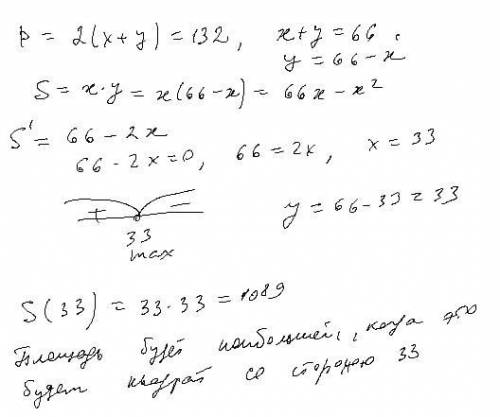 P = 2(x+y) = 132, x+y = 66.
y = 66 - x
S = x·y = x(66-x) = 66x - x²
S' = 66 - 2x
66 - 2x = 0, 66 = 2x, x = 33
+ -
33
max
y = 66 - 33 = 33
S(33) = 33·33 = 1089
Площадь будет наибольшей, когда это
будет квадрат со стороною 33